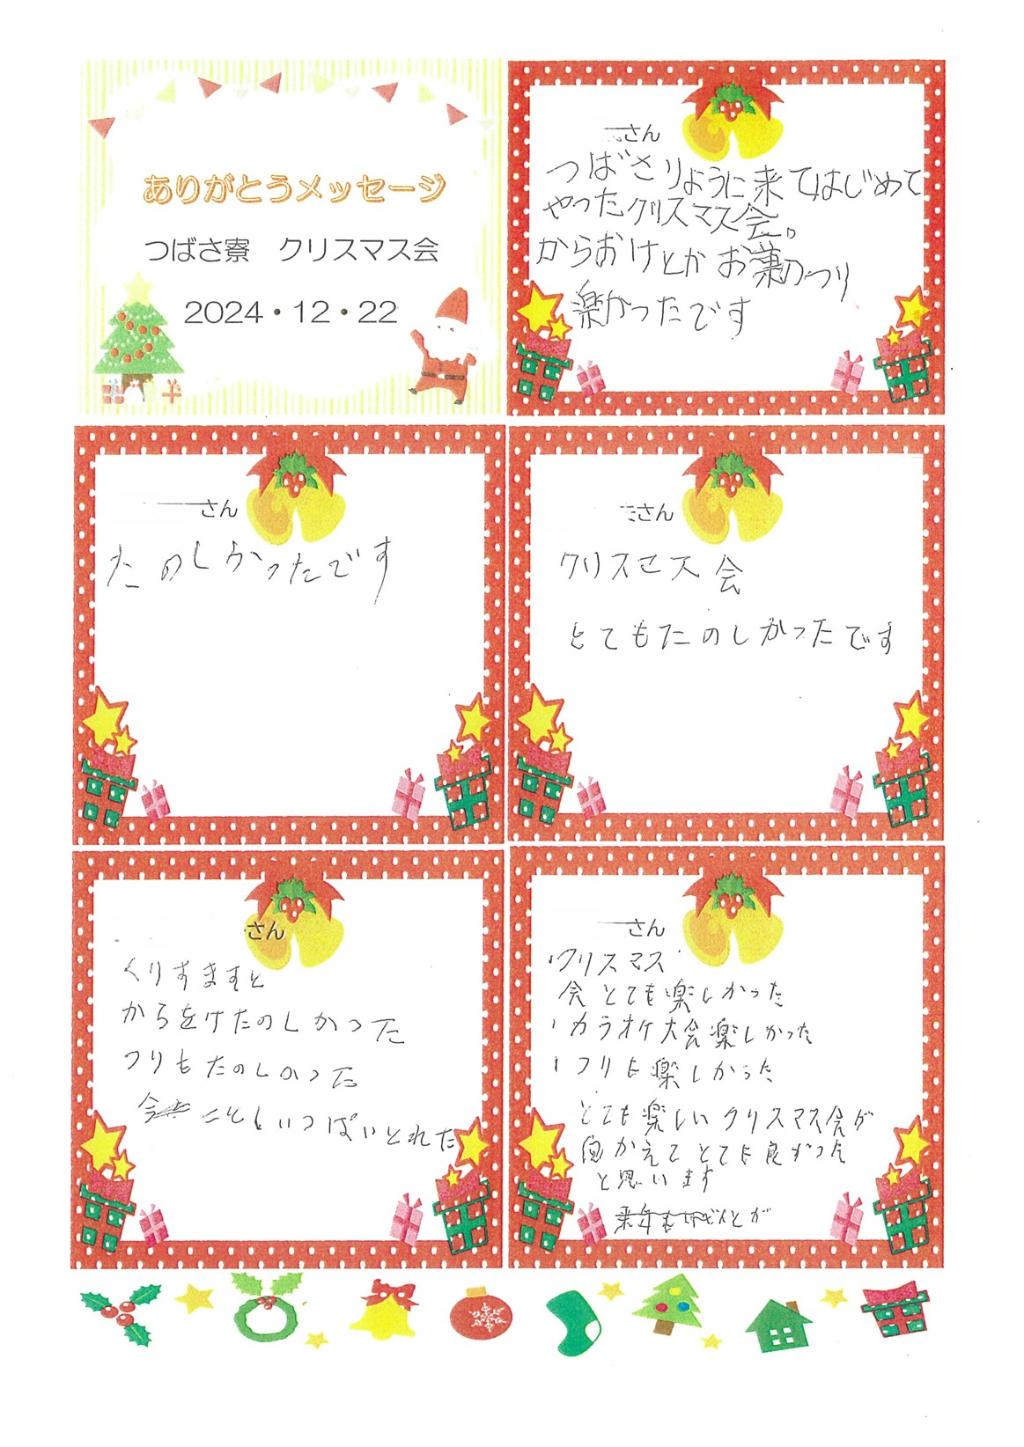 ありがとうメッセージ
つばさ寮 クリスマス会
2024・12・22
さん
つばさりように来てはじめて
やったクリスマス会。
からおけとかお菓のつり
楽かったです
さん
たのしかったです
さん
クリスマス会
とてもたのしかったです
さん
くりすますと
からをけたのしかった
つりもたのしかった
今 ことしいっぱいとれた
さん
クリスマス
会とても楽しかった
カラオケ大会楽しかった
つりも楽しかった
とても楽しいクリスマス会が
向かえてとても良かった
と思います
来年も